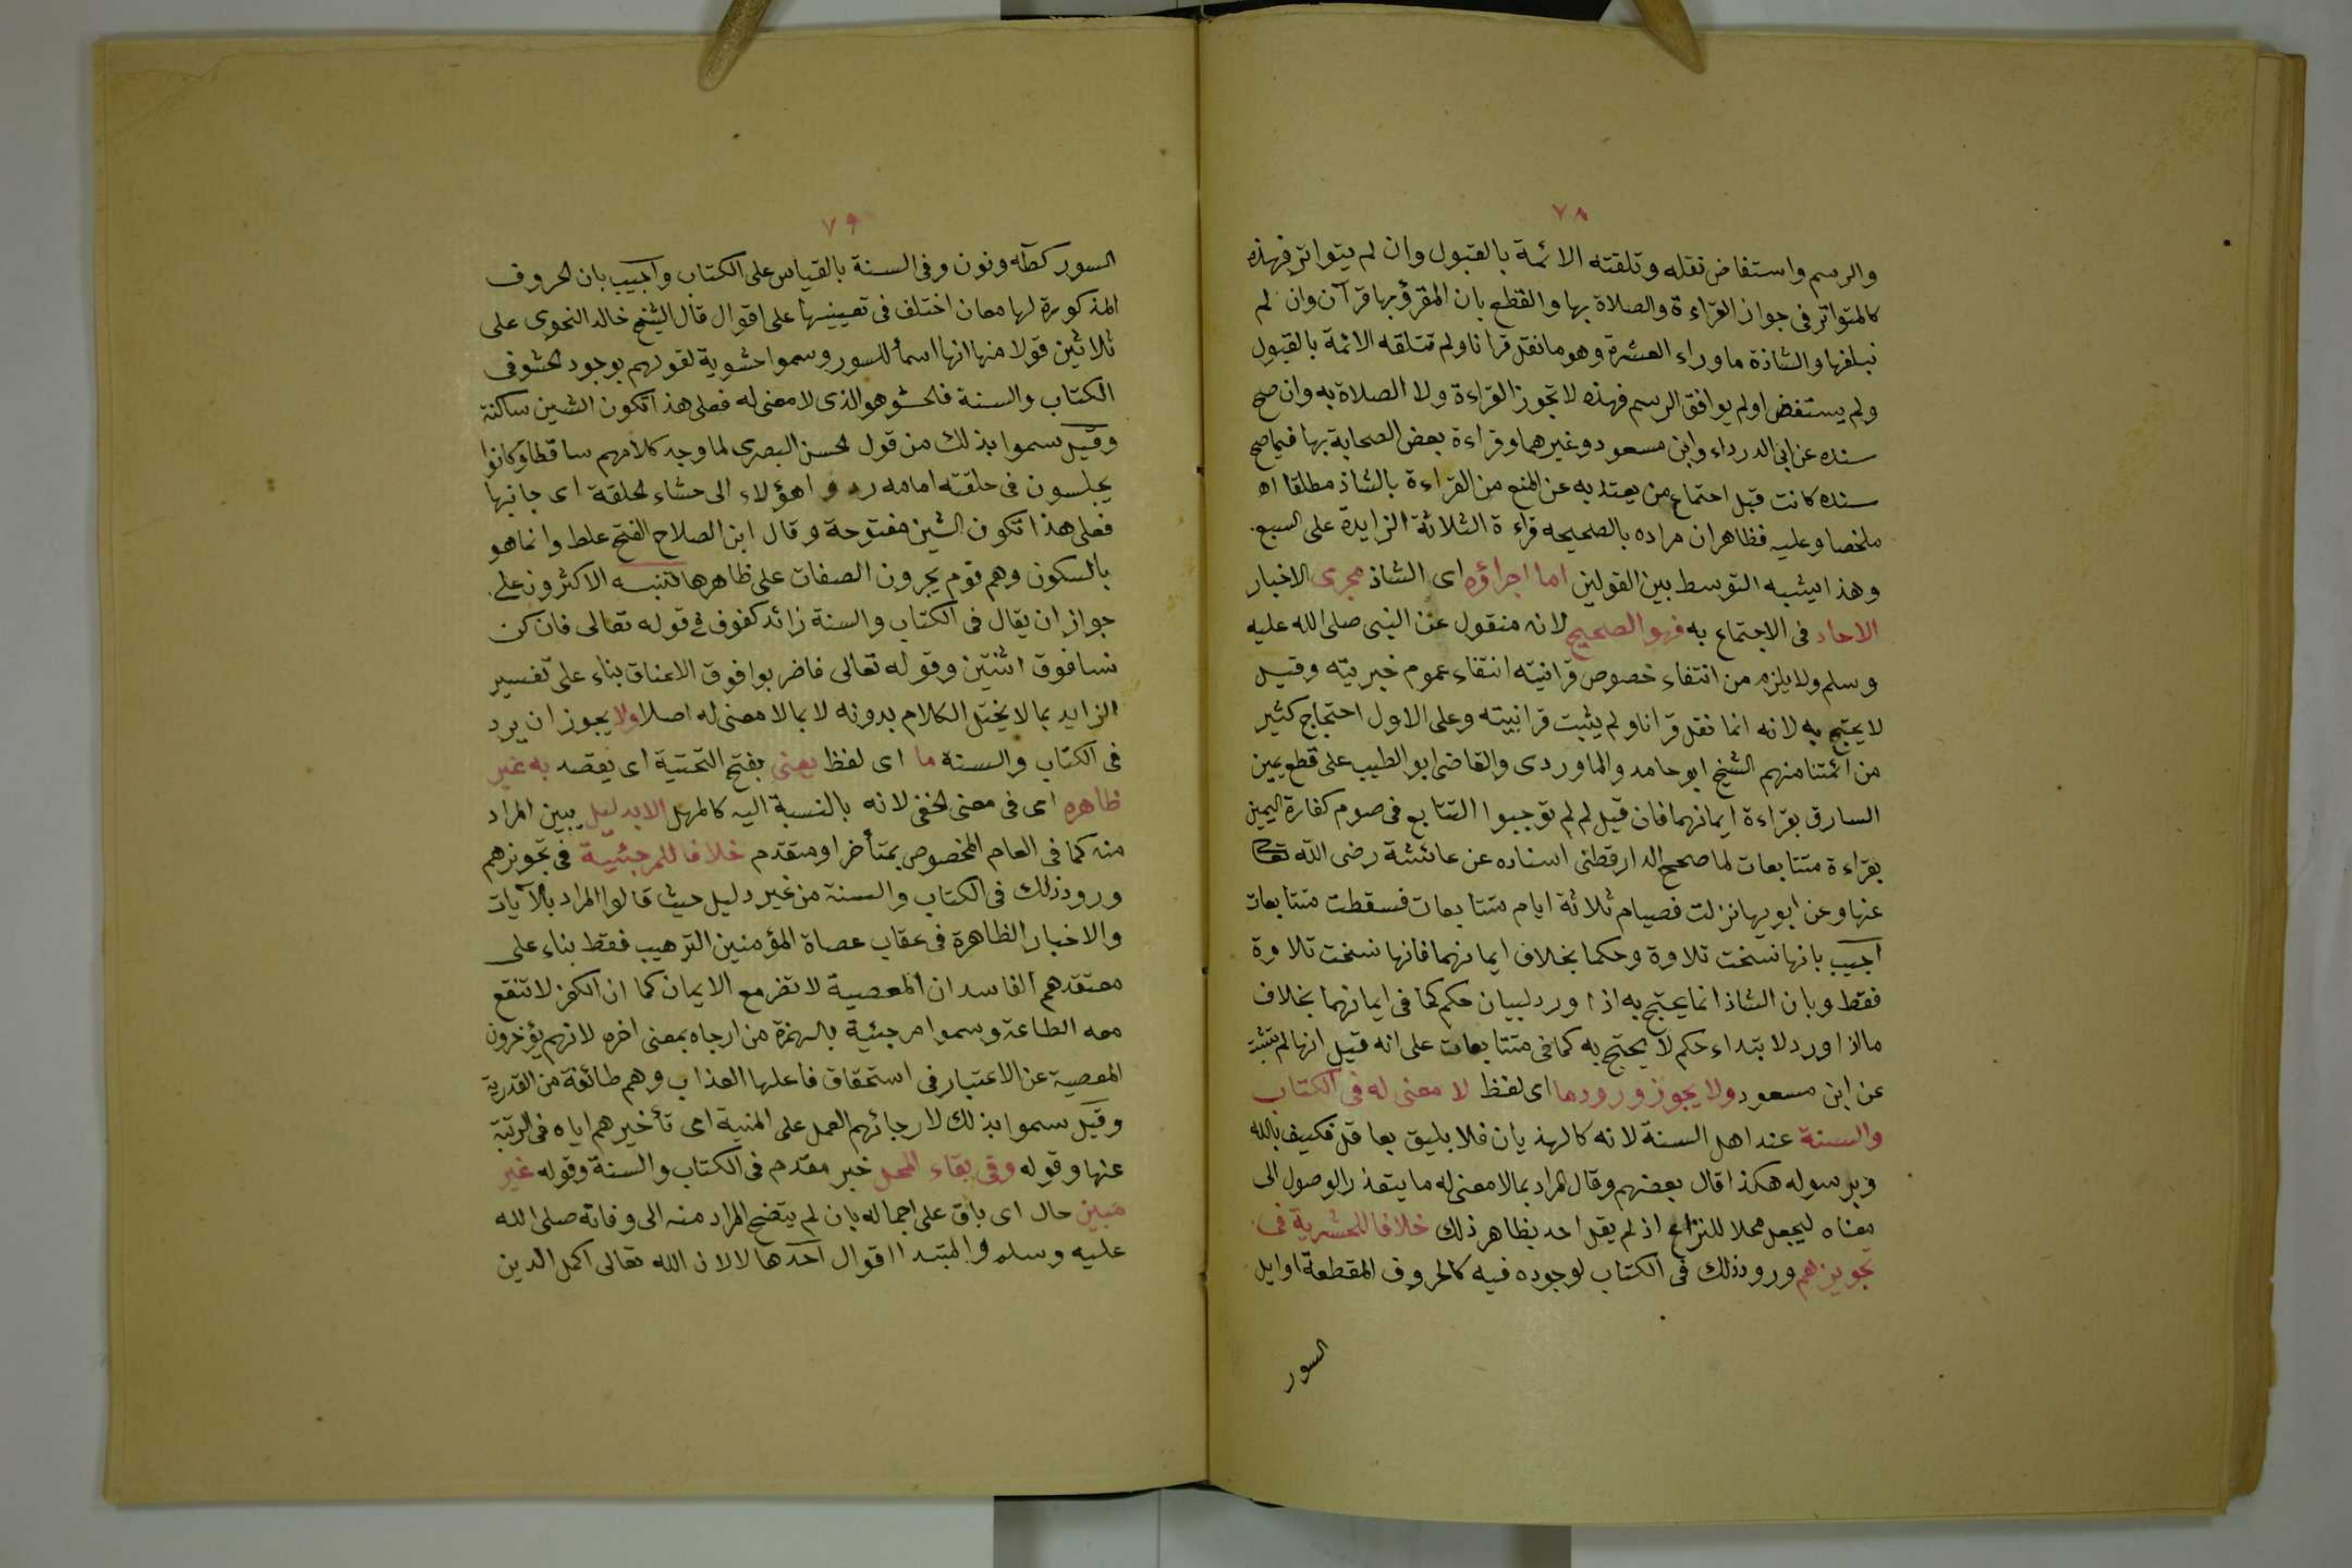 ٧٨
والرسم واستفاض نقله وتلقته الائمة بالقبول وان لم يتواتر فهذه
كالمتواتر فى جواز القراءة والصلاة بها والقطع بان المقرؤ بها قرآن وان لم
نبلغها والشاذة ماوراء العشرة وهو ما نقل قرانا ولم تتلقه الائمة بالقبول
ولم يستفض او لم يوافق الرسم فهذه لا تجوز القراءة ولا الصلاة به وان صح
سنده عن ابى الدرداء وابن مسعود وغيرهما وقراءة بعض الصحابة بها فيما صح
سنده كانت قبل اجتماع من يعتد به عن المنع من القراءة بالشاذ مطلقا اه
ملخصا وعليه فظاهر ان مراده بالصحيحه قراءة الثلاثة الزايدة على السبع
وهذا يشبه التوسط بين القولين اما اجراؤه اى الشاذ مجرى الاخبار
الاحاد فى الاجتماع به فهو الصحيح لانه منقول عن النبى صلى الله عليه
وسلم ولا يلزم من انتفاء خصوص قرانيته انتفاء عموم خبريته وقيل
لا يحتج به لانه انما نقل قرانا ولم يثبت قرانيته وعلى الاول احتجاج كثير
من ائمتنا منهم الشيخ ابو حامد والماوردى والقاضى ابو الطيب على قطع يمين
السارق بقراءة ايمانهما فان قيل لم لم توجبوا التتابع فى صوم كفارة اليمين
بقراءة متتابعات لما صحح الدارقطنى اسناده عن عائشة رضى الله تعالى
عنها وعن ابويها نزلت فصيام ثلاثة ايام متتابعات فسقطت متتابعات
اجيب بانها نسخت تلاوة وحكما بخلاف ايمانهما فانها نسخت تلاوة
فقط وبان الشاذ انما يحتج به اذا ورد لبيان حكم كما فى ايمانهما بخلاف
ما اذا ورد لابتداء حكم لا يحتج به كما فى متتابعات على انه قيل انها لم تثبت
عن ابن مسعود ولا يجوز ورود ما اى لفظ لا معنى له فى الكتاب
والسنة عند اهل السنة لانه كالهذيان فلا يليق بعاقل فكيف بالله
وبرسوله هكذا قال بعضهم وقال المراد بما لا معنى له ما يتعذر الوصول الى
معناه ليجعل محلا للنزاع اذ لم يقل احد بظاهر ذلك خلافا للحشرية فى
تجويزهم ورود ذلك فى الكتاب لوجوده فيه كالحروف المقطعة اوايل
السور
٧٩
السور كطه ونون وفى السنة بالقياس على الكتاب واجيب بان الحروف
المذكورة لها معان اختلف فى تعيينها على اقوال قال الشيخ خالد النحوى على
ثلاثين قولا منها انها اسمأ للسور وسموا حشوية لقولهم بوجود الحشو فى
الكتاب والسنة فالحشو هو الذى لا معنى له فعلى هذا تكون الشين ساكنة
وقيل سموا بذلك من قول الحسن البصرى لما وجد كلامهم ساقطا وكانوا
يجلسون فى حلقته امامه ردوا هؤلاء الى حشاء الحلقة اى جانبها
فعلى هذا تكون الشين مفتوحة وقال ابن الصلاح الفتح غلط وانما هو
بالسكون وهم قوم يجرون الصفات على ظاهرها تنبيه الاكثرون على
جواز ان يقال فى الكتاب والسنة زائد كفوق فى قوله تعالى فان كن
نسا فوق اثنتين وقوله تعالى فاضربوا فوق الاعناق بناء على تفسير
الزايد بما لا يختل الكلام بدونه لا بما لا معنى له اصلا ولا يجوز ان يرد
فى الكتاب والسنة ما اى لفظ يعنى بفتح التحتية اى يقصد به غير
ظاهره اى فى معنى الخفى لانه بالنسبة اليه كالمهمل الا بدليل يبين المراد
منه كما فى العام المخصوص بمتأخر او متقدم خلافا للمرجئية فى تجويزهم
ورود ذلك فى الكتاب والسنة من غير دليل حيث قالوا المراد بالآيات
والاخبار الظاهرة فى عقاب عصاة المؤمنين الترهيب فقط بناء على
معتقدهم الفاسد ان المعصية لا تضر مع الايمان كما ان الكفر لا تنفع
معه الطاعة وسموا مرجئية بالهمزة من ارجاه بمعنى اخره لانهم يؤخرون
المعصية عن الاعتبار فى استحقاق فاعلها العذاب وهم طائفة من القدرية
وقيل سموا بذلك لارجائهم العمل على النية اى تأخيرهم اياه فى الرتبة
عنها وقوله وفى بقاء المجمل خبر مقدم فى الكتاب والسنة وقوله غير
مبين حال اى باق على اجماله بان لم يتضح المراد منه الى وفاته صلى الله
عليه وسلم والمبتدا اقوال احدها لا لان الله تعالى اكمل الدين